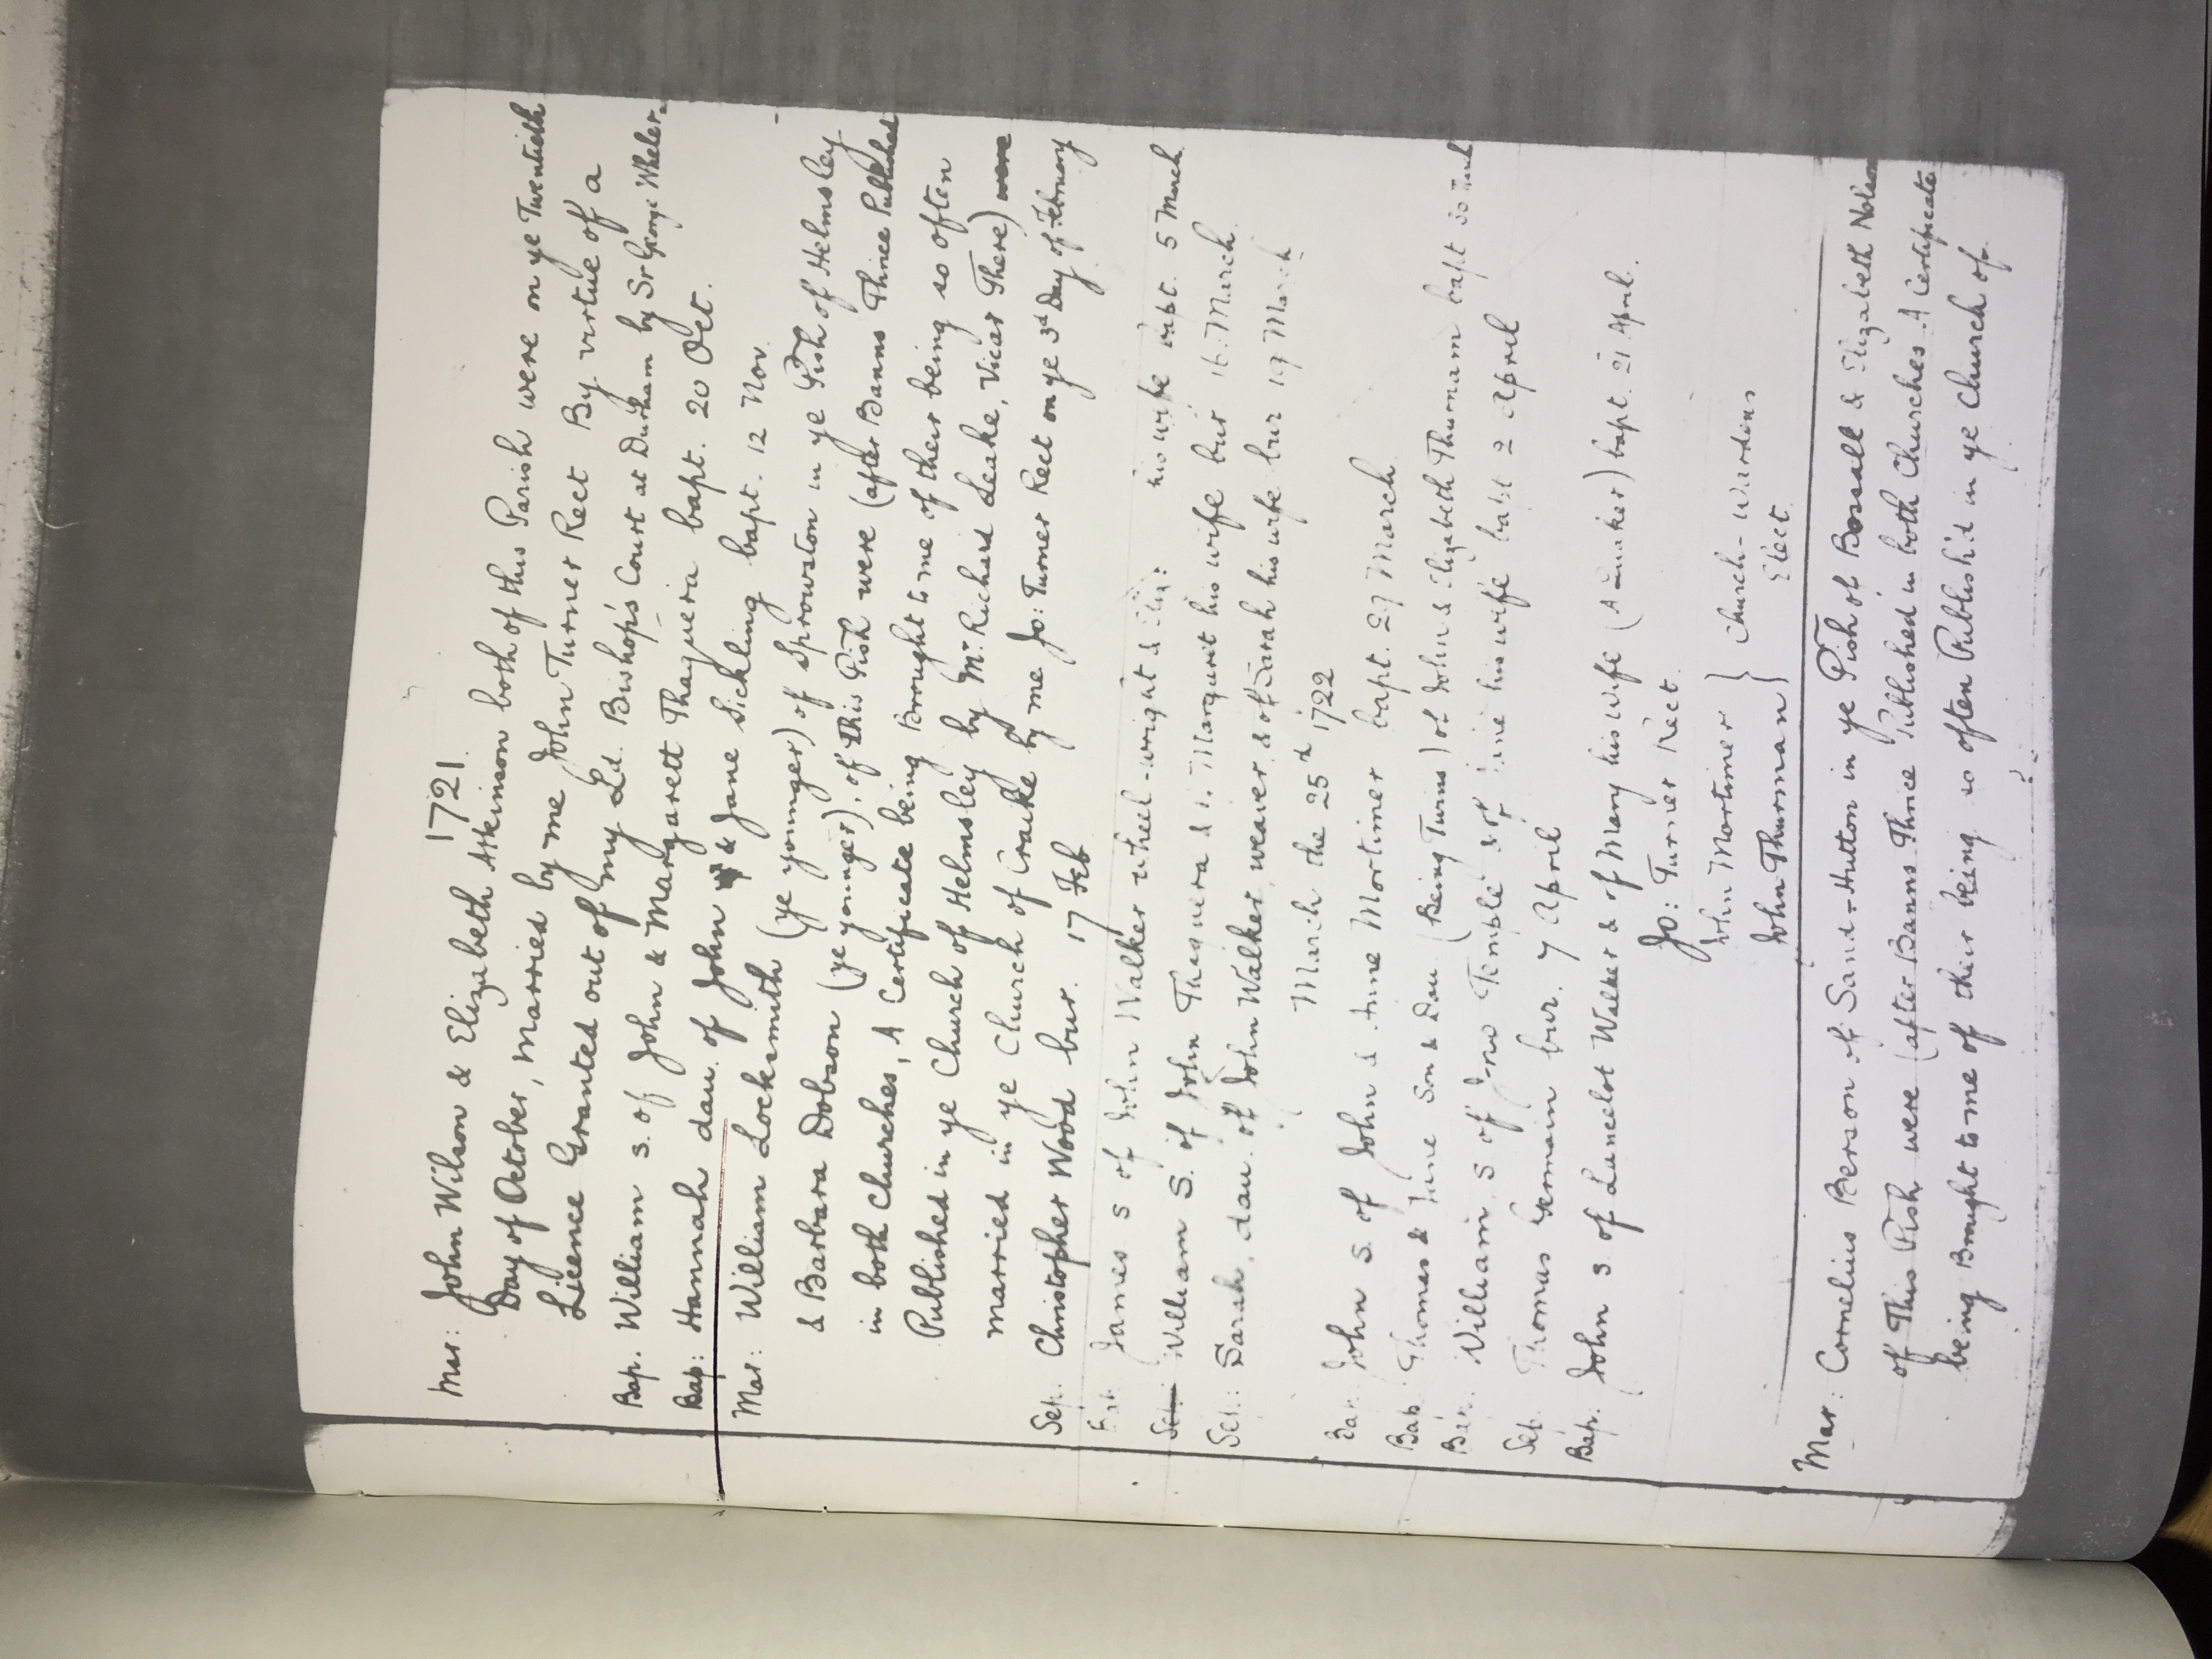 1721
Mar: John Wilson & Elizabeth Atkinson both of this Parish were on ye Twentieth
Day of October, Married by me John Turner Rect By virtue of a
Licence Granted out of my Ld. Bishop's Court at Durham by Sr George Wheler.
Bap. William s. of John & Margarett Thaqueria bapt. 20 Oct.
Bap: Hannah dau. of John & Jane Sickling bapt. 12 Nov.
Mar: William Locksmith (ye younger) of Sprowston in ye Pish of Helmsley
& Barbara Dobson (ye younger), of this Pish were (after Banns Thrice Published
in both Churches, A Certificate being Brought to me of their being so often
Published in ye Church of Helmsley by Mr Richard Leake, Vicar There) were
married in ye Church of Craike by me Jo: Turner Rect on ye 3d Day of February
Sep. Christopher Wood bur. 17 Feb
James s of John Walker wheel-wright & Eliz: his wife bapt. 5 March
Sep: William s. of John Thaquera & Margaret his wife bur 16 March
Sep: Sarah, dau. of John Walker, weaver & of Sarah his wife bur 19 March
March the 25th 1722
Bap. John s. of John & Anne Mortimer bapt. 27 March
Bap Thomas & Jane Son & Dau (Being Twins) of John & Elizabeth Thurnam bapt 30
Bap. William s of Jno Temple & of Jane his wife bapt 2 April
Sep. Thomas Germain bur. 7 April
Bap. John s of Lancelot Walker & of Mary his wife (A Quaker) bapt. 21 April.
Jo: Turner Rect.
John Mortimer } Church-Wardens
John Thurman } Elect
Mar: Cornelius Berson of Sand-Hutton in ye Pish of Bossall & Elizabeth
of This Pish were (after Banns Thrice Published in both Churches A Certificate
being Brought to me of their being so often Publish'd in ye Church of